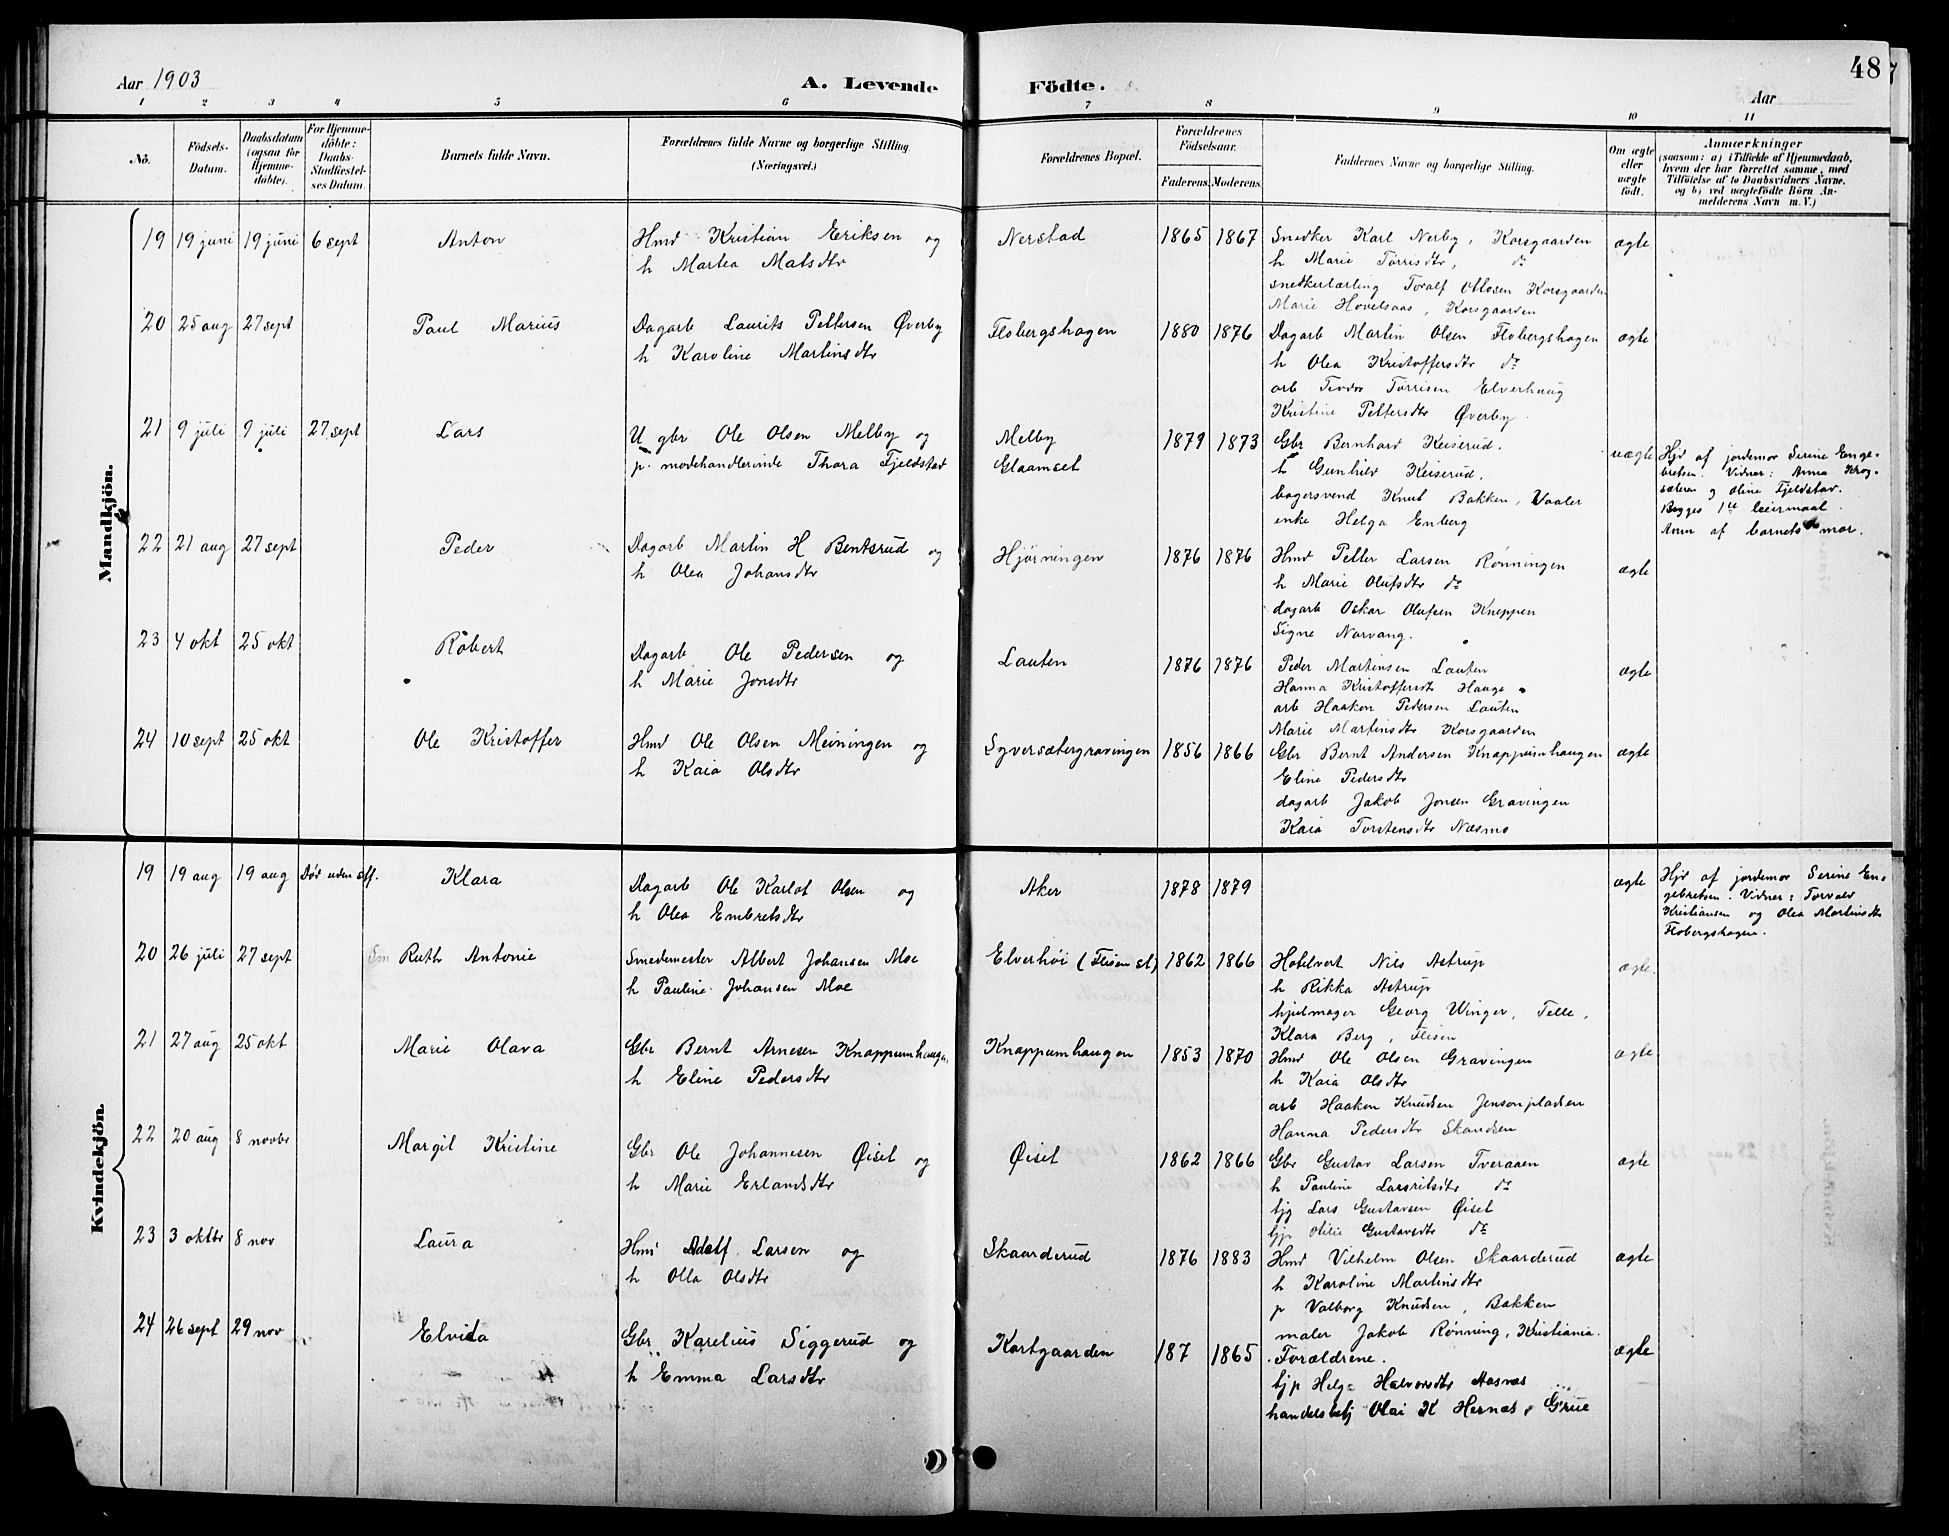 Aar 1903
A. Levende Födte.
Aar
48
1 2 3 4 5 6 7 8 9 10 11
No.
Födsels-Datum.
Daabsdatum (ogsaa for Hjemme-döbte).
For Hjemme-döbte: Daabs-Stadfæstel-ses Datum.
Barnets fulde Navn.
Forældrenes fulde Navne og borgerlige Stilling (Næringsvei.)
Forældrenes Bopæl.
Forældrenes Födselsaar.
Faderens. Moderens.
Faddernes Navne og borgerlige Stilling.
Om ægte eller uægte födt.
Anmærkninger
(saasom: a) i Tilfælde af Hjemmedaab,
hvem der har forrettet samme, med
Tilföielse af to Daabsvidners Navne.
og b) ved uægtefödte Börn An-
melderens Navn m. V.)
Mandkjön.
19 19 juni 19 juni 6 sept Anton Hmd Kristian Eriksen og Nerstad 1865 1867 Snedker Karl Nerby, Korsgaarden ægte
h Martea Matsdtr h Marie Tørrisdtr, do
snedkerlærling Toralf Ottosen Korsgaarden
Marie Hovelsaas, Korsgaarden
20 25 aug 27 sept Paul Marius Dagarb Laurits Pettersen Øverby Flobergshagen 1880 1876 Dagarb Martin Olsen Flobergshagen ægte
h Karoline Martinsdtr h Olea Kristoffersdtr do
arb Teodor Tørrisen Elverhaug
Kristine Pettersdtr Øverby.
21 9 juli 9 juli 27 sept Lars U gbr Ole Olsen Melby og Melby 1879 1873 Gbr Bernhard Keiserud. uægte Hjd af jordemor Serine Enge-
p. modehandlerinde Thora Fjeldstad Glaamset h Gunhild Keiserud, bretsen. Vidner: Anna Krog-
bagersvend Knut Bakken, Vaaler sæteren og Oline Fjeldstad.
enke Helga Enberg Begges 1ste leiermaal.
Anm af barnets mor.
22 21 aug 27 sept Peder Dagarb Martin H Bentsrud og Hjørningen 1876 1876 Hmd Petter Larsen Rønningen ægte
h Olea Johansdtr h Marie Olufsdtr do
dagarb Oskar Olufsen Kneppen
Signe Norvang.
23 4 okt 25 okt Robert Dagarb Ole Pedersen og Lauten 1876 1876 Peder Martinsen Lauten ægte
h Marie Jonsdtr Hanna Kristoffersdtr Hauge
arb Haakon Pedersen Lauten
Marie Martinsdtr Korsgaarden
24 10 sept 25 okt Ole Kristoffer Hmd Ole Olsen Meiningen og Syversætergravingen 1856 1866 Gbr Bernt Andersen Knappumhaugen ægte
h Kaia Olsdtr Eline Pedersdtr
dagarb Jakob Jonsen Gravingen
Kaia Torstensdtr Næsmo
Kvindekjön.
19 19 aug 19 aug Død uden stf. Klara Dagarb Ole Karlot Olsen og Aker 1878 1879 ægte Hjd af jordemor Serine En-
h Olea Embretsdtr gebretsen. Vidner: Torvald
Kristiansen og Olea Martinsdtr
Flobergshagen.
20 26 juli 27 sept Ruth Antonie Smedemester Albert Johansen Moe Elverhøi (Flisen st) 1862 1866 Hotelvert Nils Astrup ægte.
h Pauline Johansen Moe h Rikka Astrup
hjulmager Georg Winger, Telle,
Klara Berg, Flisen
21 27 aug 25 okt Marie Olava Gbr Bernt Arnesen Knappumhaugen Knappumhaugen 1853 1870 Hmd Ole Olsen Gravingen ægte
h Eline Pedersdtr h Kaia Olsdtr
arb Haakon Knudsen Jensonpladsen
Hanna Pedersdtr Skandsen
22 20 aug 8 novbr Margit Kristine Gbr Ole Johannesen Øiset og Øiset 1862 1866 Gbr Gustav Larsen Tveraaen ægte
h Marie Erlandsdtr h Pauline Lauritsdtr do
bjg Lars Gustavsen Øiset
bjp Otilie Gustavsdtr do
23 3 oktbr 8 nov Laura Hmd Adolf Larsen og Skaarderud 1876 1883 Hmd Vilhelm Olsen Skaarderud ægte
h Olla Olsdtr h Karoline Martinsdtr
p Valborg Knudsen, Bakken
maler Jakob Rønning, Kristiania.
24 26 sept 29 nov Elvida Gbr Karelius Siggerud og Kortgaarden 187 1865 Forældrene. ægte
h Emma Larsdtr bjp Helga Halvorsdtr Aasnæs
handelsbetj Olai K Hernæs, Grue